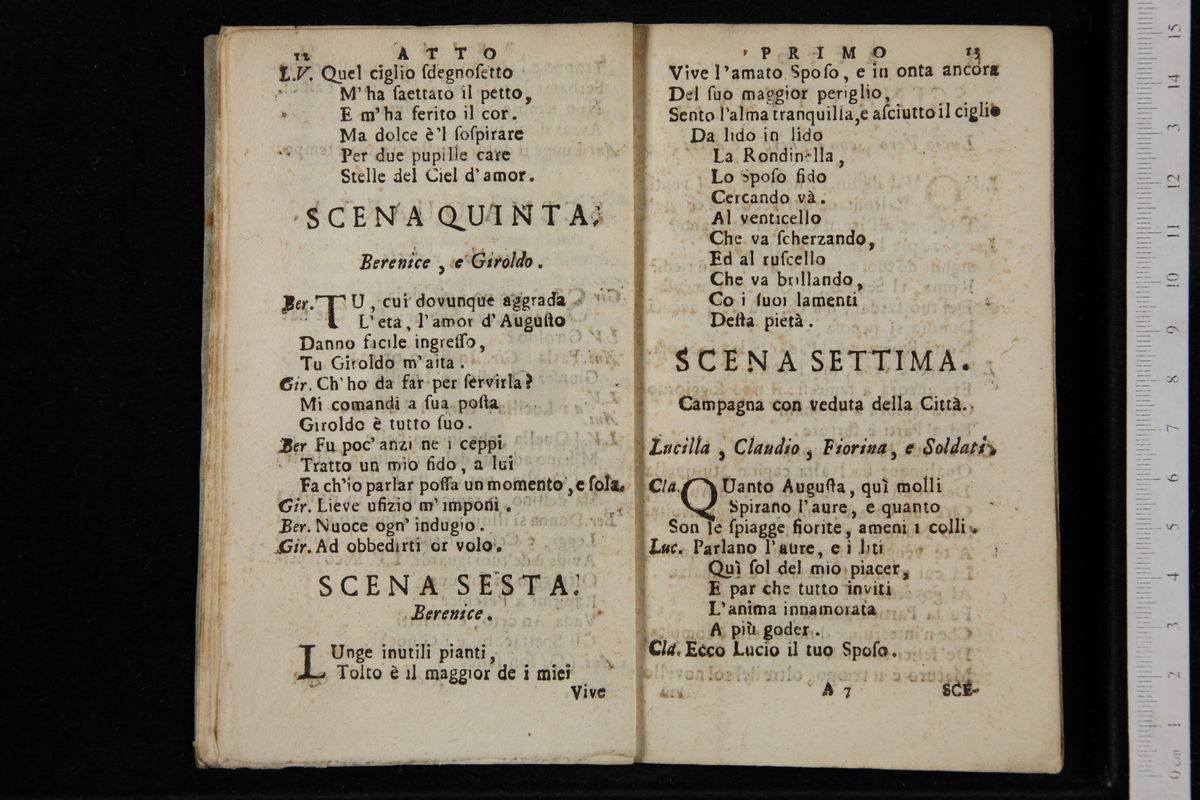 12 ATTO
L.V. Quel ciglio ſdegnoſetto
M'ha ſaettato il petto,
E m'ha ferito il cor.
Ma dolce è'l ſoſpirare
Per due pupille care
Stelle del Ciel d'amor.
SCENA QUINTA.
Berenice, e Giroldo.
Ber. TU, cui dovunque aggrada
L'eta, l'amor d'Auguſto
Danno facile ingreſſo,
Tu Giroldo m'aita.
Gir. Ch'ho da far per ſervirla?
Mi comandi a ſua poſta
Giroldo è tutto ſuo.
Ber Fu poc' anzi ne i ceppi
Tratto un mio fido, a lui
Fa ch'io parlar poſſa un momento, e ſola.
Gir. Lieve ufizio m'imponi.
Ber. Nuoce ogn' indugio.
Gir. Ad obbedirti or volo.
SCENA SESTA.
Berenice.
LUnge inutili pianti,
Tolto è il maggior de i miei
Vive
PRIMO 13
Vive l'amato Spoſo, e in onta ancora
Del ſuo maggior periglio,
Sento l'alma tranquilla, e aſciutto il ciglio
Da lido in lido
La Rondinella,
Lo Spoſo fido
Cercando và.
Al venticello
Che va ſcherzando,
Ed al ruſcello
Che va brillando,
Co i ſuoi lamenti
Deſta pietà.
SCENA SETTIMA.
Campagna con veduta della Città.
Lucilla, Claudio, Fiorina, e Soldati.
Cla. QUanto Auguſta, quì molli
Spirano l'aure, e quanto
Son le ſpiagge fiorite, ameni i colli.
Luc. Parlano l'aure, e i liti
Quì ſol del mio piacer,
E par che tutto inviti
L'anima innamorata
A più goder.
Cla. Ecco Lucio il tuo Spoſo.
A 7 SCE-
0 cm 1 2 3 4 5 6 7 8 9 10 11 12 13 14 15